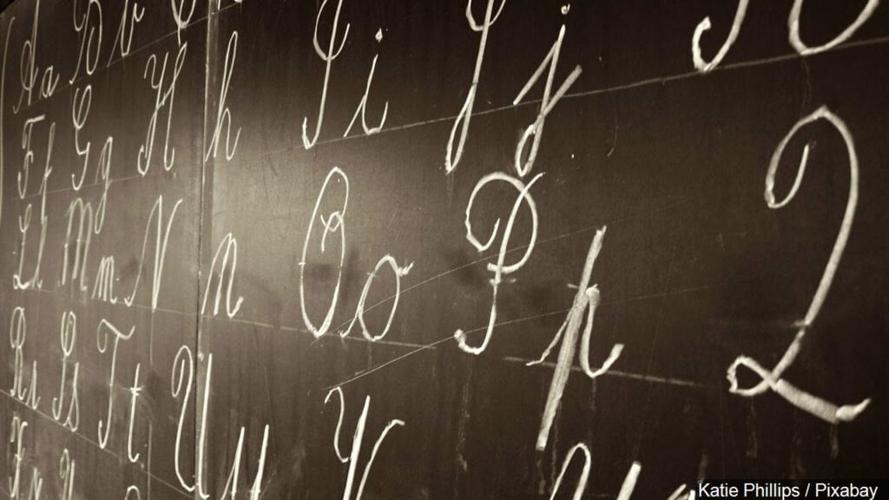 Aa Bb
Ff Gg Hh Ii Jj
Ll Mm Nn Oo Pp Q
Rr Ss Tt Uu V
Katie Phillips / Pixabay